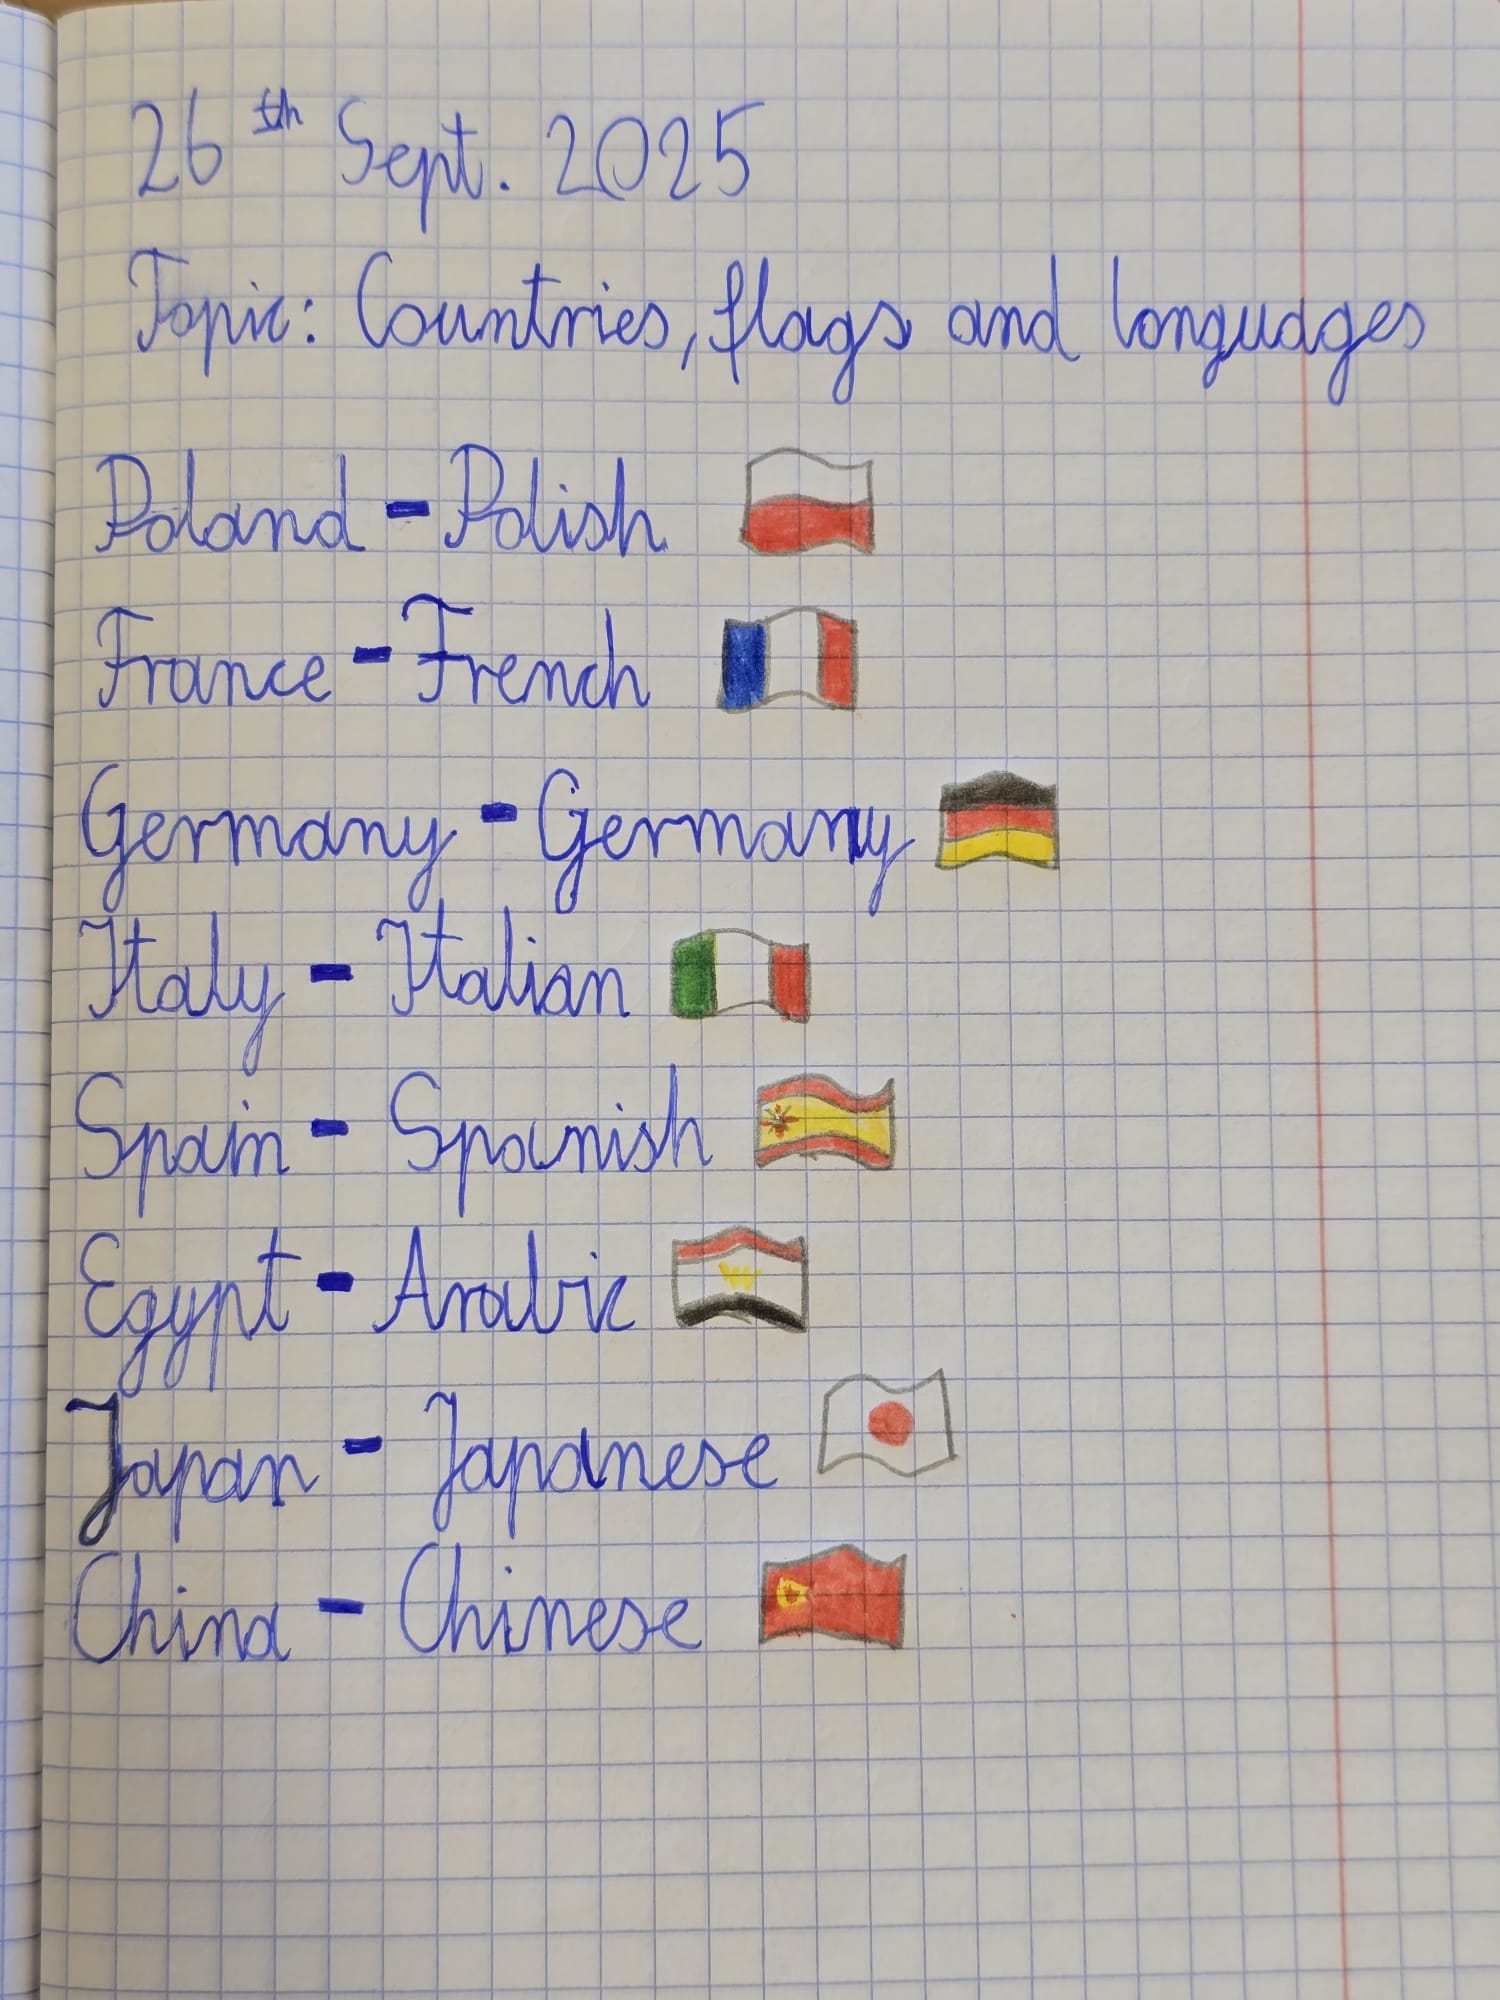 26th Sept. 2025
Topic: Countries, flags and languages
Poland - Polish
France - French
Germany - Germany
Italy - Italian
Spain - Spanish
Egypt - Arabic
Japan - Japanese
China - Chinese